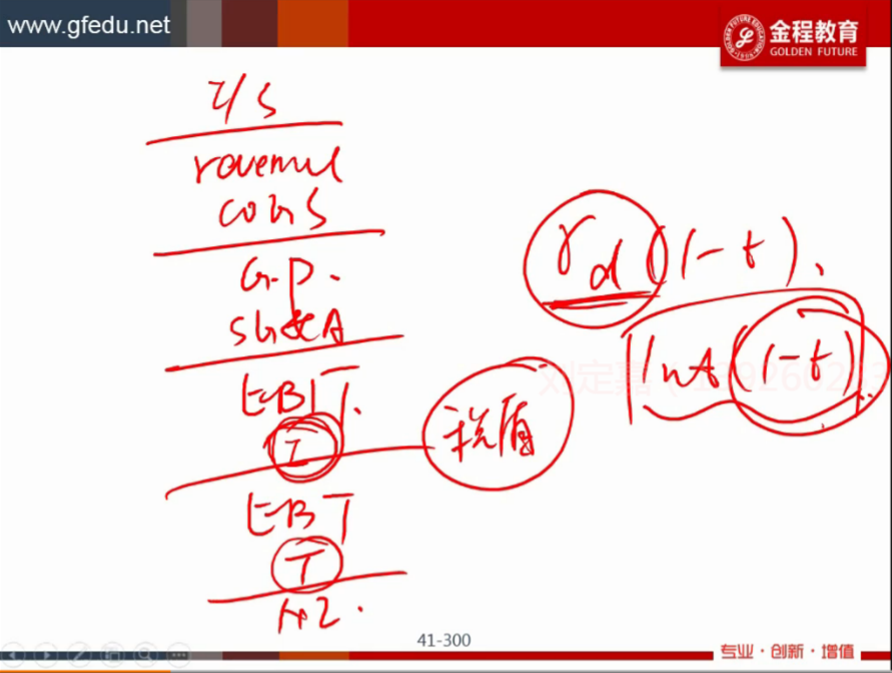 www.gfedu.net
金程教育
GOLDEN FUTURE
I/S
revenue
COGS
G.P.
SG&A
EBIT.
I
税盾
EBT
T
N2.
rd(1-t).
Int(1-t).
41-300
专业·创新·增值